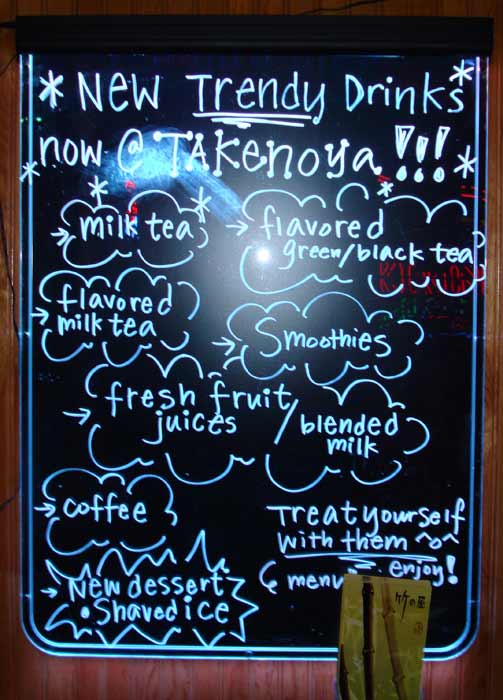 * New Trendy Drinks *
* now @ TAKenoya !!! *
milk tea
flavored
green/black tea
flavored
milk tea
Smoothies
fresh fruit
juices
/blended
milk
coffee
New dessert
• Shaved ice
Treat yourself
with them ^o^
menu enjoy!
竹の屋